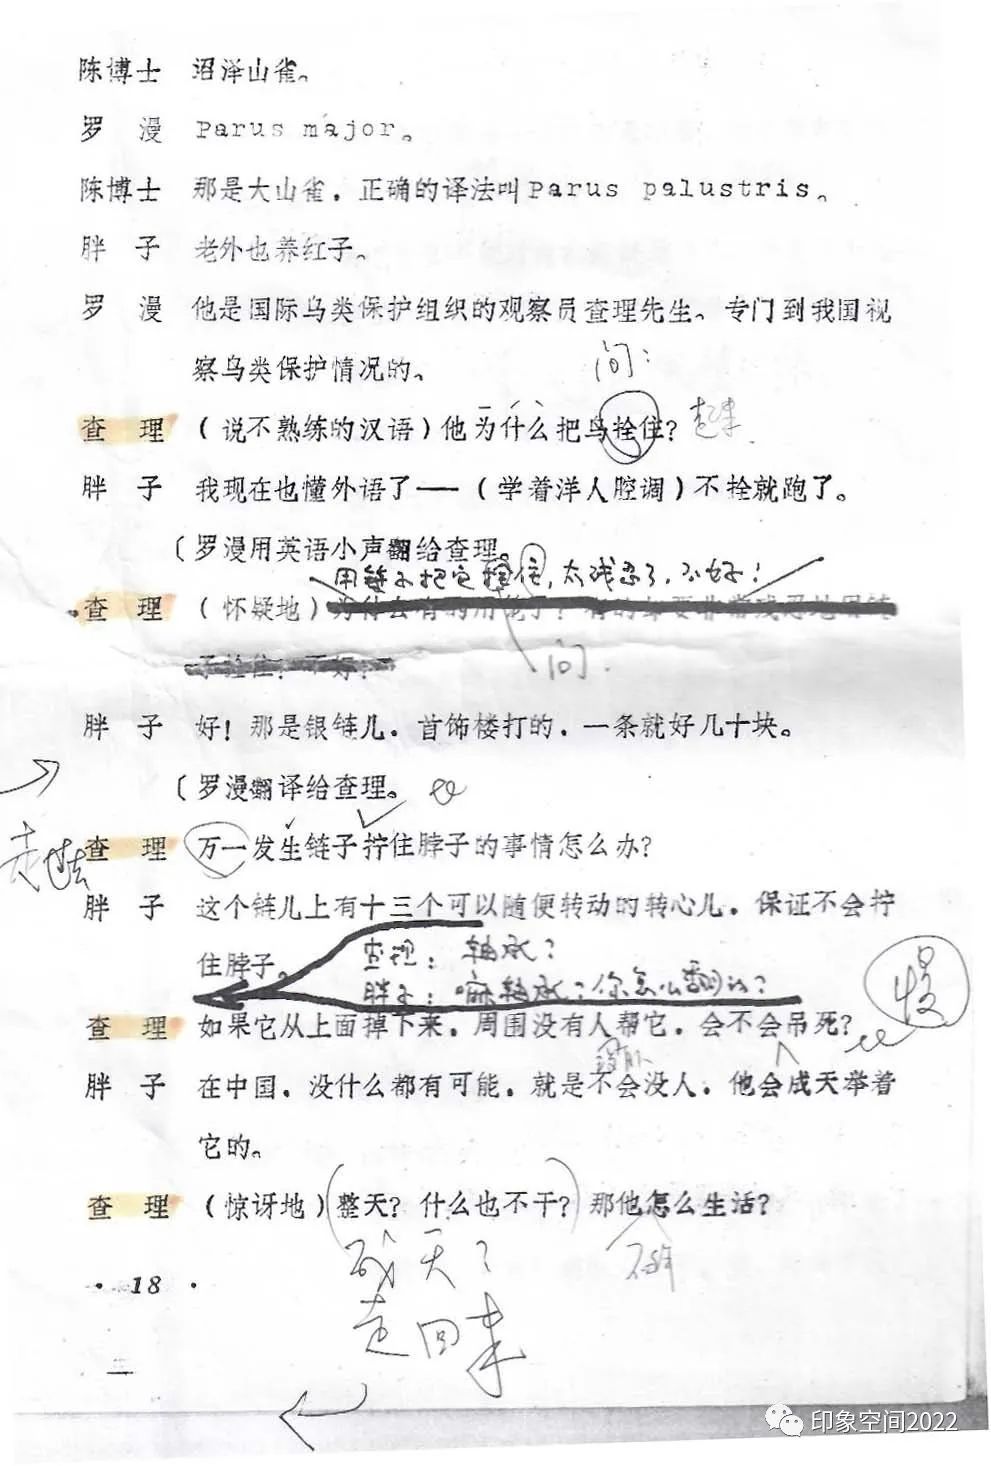 陈博士 沼泽山雀。
罗 漫 Parus major。
陈博士 那是大山雀，正确的译法叫Parus palustris。
胖 子 老外也养红子。
罗 漫 他是国际鸟类保护组织的观察员查理先生。专门到我国视
察鸟类保护情况的。
问：
查 理 (说不熟练的汉语)他为什么把鸟拴住？起来
胖 子 我现在也懂外语了——(学着洋人腔调)不拴就跑了。
〔罗漫用英语小声翻给查理。
用链子把它拴住，太残忍了，不好！
查 理 (怀疑地)
问
胖 子 好！那是银链儿，首饰楼打的，一条就好几十块。
〔罗漫翻译给查理。
走过去
查 理 万一发生链子拧住脖子的事情怎么办？
胖 子 这个链儿上有十三个可以随便转动的转心儿，保证不会拧
住脖子。
查理：轴承？
胖子：嘛轴承？你怎么翻的？
慢
查 理 如果它从上面掉下来，周围没有人帮它，会不会吊死？
胖 子 在中国，没什么都有可能，就是不会没人，他会成天举着
它的。
查 理 (惊讶地)(整天？什么也不干？)那他怎么生活？
成天？
走回来
·18·
印象空间2022